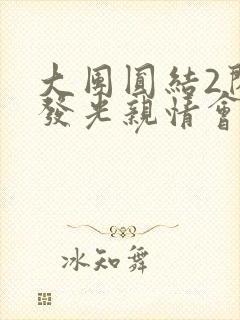 大团圓結2
發光親情會
冰知舞